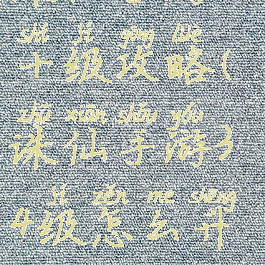 shí jí gōng lüè
十级攻略(
zhū xiān shǒu yóu
诛仙手游3
jí zěn me shēng
4级怎么升